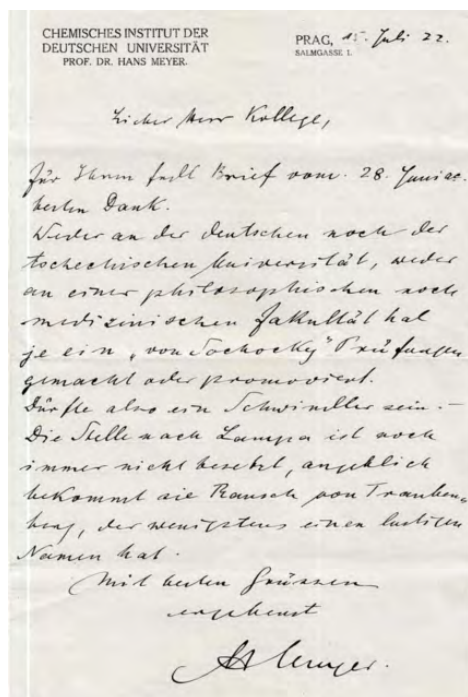 CHEMISCHES INSTITUT DER
DEUTSCHEN UNIVERSITÄT
PROF. DR. HANS MEYER.
PRAG, 15. Juli 22.
SALMGASSE 1.
Lieber Herr Kollege,
Für Ihren frdl Brief vom 28. Juni ac.
besten Dank.
Weder an der deutschen noch der
tschechischen Universität, weder
an einer philosophischen noch
medizinischen Fakultät hat
je ein „von Sochocky" Prüfungen
gemacht oder promoviert.
Dürfte also ein Schwindler sein. –
Die Stelle nach Lampa ist noch
immer nicht besetzt, angeblich
bekommt sie Rausch von Trauben-
berg, der wenigstens einen lustigen
Namen hat.
Mit besten Grüssen
ergebenst
HMeyer.